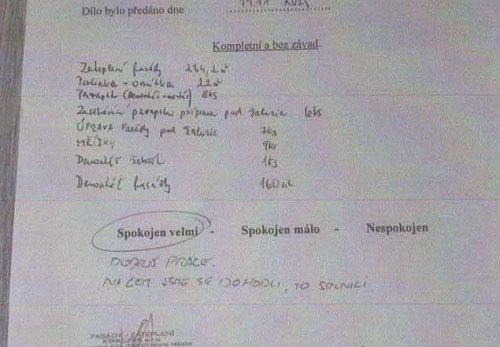 Dílo bylo předáno dne
Kompletní a bez závad.
Zateplení fasády 284,2 m²
Perlinka - omítka 22 m²
Parapety 8ks
Zasekávání parapetů příprava pod žaluzie 6ks
ÚPRAVA Fasády pod žaluzie 7ks
MŘÍŽKY 9ks
Demontáž 1ks
Demontáž fasády 160 m²
Spokojen velmi - Spokojen málo - Nespokojen
DOBRÁ PRÁCE.
NA ČEM JSME SE DOHODLI, TO SPLNILI
FASÁDNÍ - ZATEPLENÍ